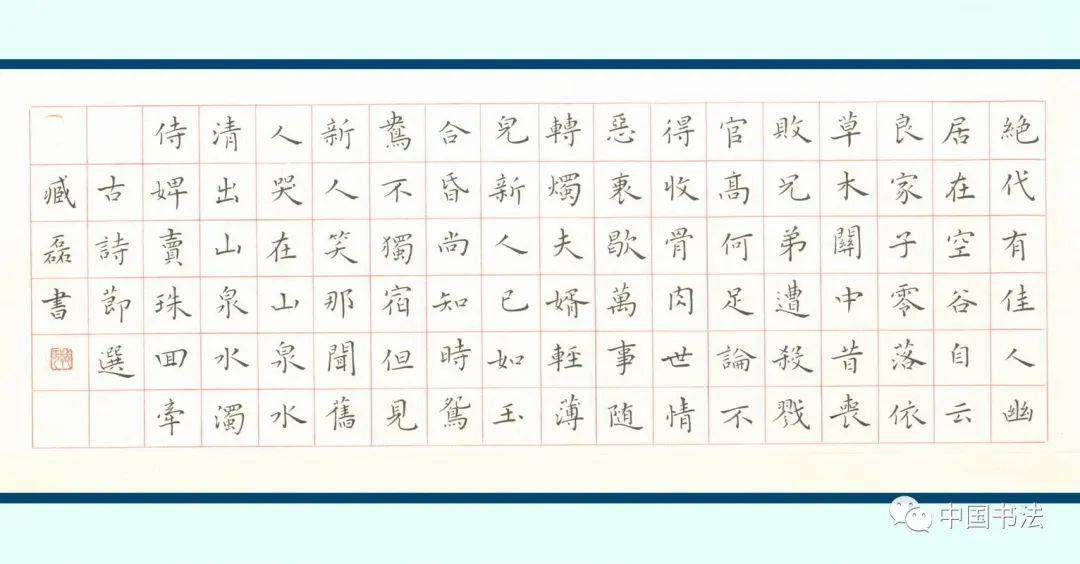 絶代有佳人幽
居在空谷自云
良家子零落依
草木關中昔喪
敗兄弟遭殺戮
官高何足論不
得收骨肉世情
惡衰歇萬事随
轉燭夫婿輕薄
兒新人已如玉
合昏尚知時鴛
鴦不獨宿但見
新人笑那聞舊
人哭在山泉水
清出山泉水濁
侍婢賣珠回牽
古詩節選
臧磊書
中国书法